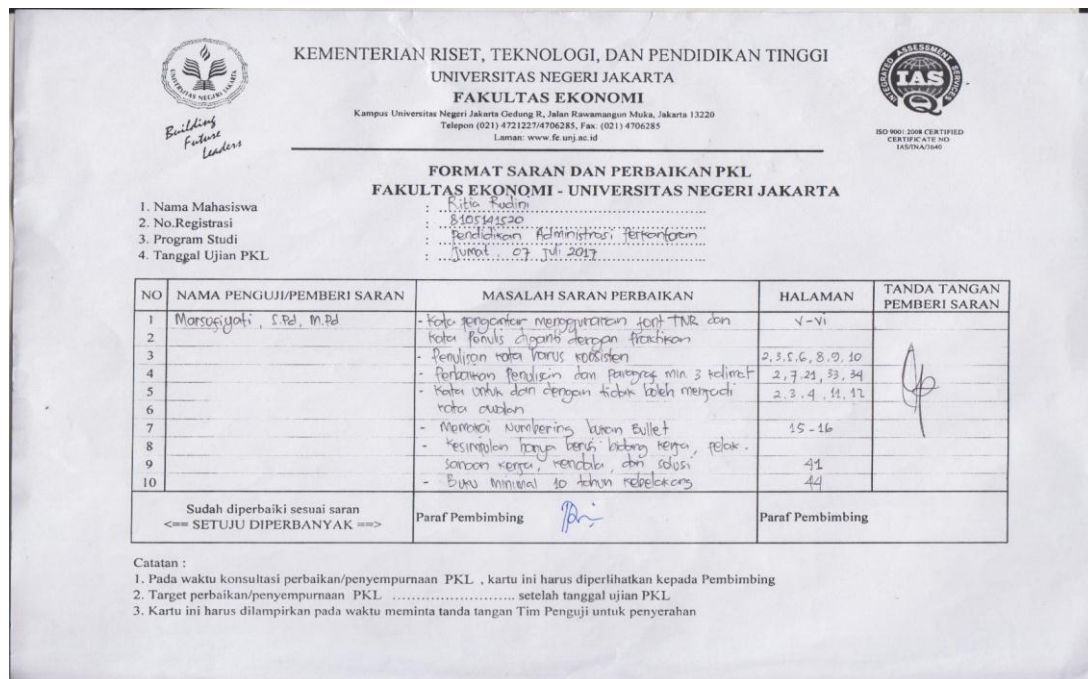 KEMENTERIAN RISET, TEKNOLOGI, DAN PENDIDIKAN TINGGI
UNIVERSITAS NEGERI JAKARTA
FAKULTAS EKONOMI
Kampus Universitas Negeri Jakarta Gedung R, Jalan Rawamangun Muka, Jakarta 13220
Telepon (021) 4721227/4706285, Fax: (021) 4706285
Laman: www.fe.unj.ac.id
UNIVERSITAS NEGERI JAKARTA
Building
Future
Leaders
INTEGRATED ASSESSMENT SERVICES
IAS
ISO 9001:2008 CERTIFIED
CERTIFICATE NO
IAS/INA/3640
FORMAT SARAN DAN PERBAIKAN PKL
FAKULTAS EKONOMI - UNIVERSITAS NEGERI JAKARTA
1. Nama Mahasiswa : Ritia Rudini
2. No.Registrasi : 8105141520
3. Program Studi : Pendidikan Administrasi Perkantoran
4. Tanggal Ujian PKL : Jumat, 07 Juli 2017
NO NAMA PENGUJI/PEMBERI SARAN MASALAH SARAN PERBAIKAN HALAMAN TANDA TANGAN
PEMBERI SARAN
1 Marsofiyati, S.Pd, M.Pd - Kata pengantar menggunakan font TNR dan V-Vi
2 kata Penulis diganti dengan Praktikan
3 - Penulisan kata harus konsisten 2,3,5,6,8,9,10
4 - Perbaikan Penulisan dan paragraf min 3 kalimat 2,7,21,33,34
5 - Kata untuk dan dengan tidak boleh menjadi 2,3,4,11,12
6 kata awalan
7 - Memakai Numbering bukan Bullet 15-16
8 - Kesimpulan hanya berisi bidang kerja, pelak-
9 sanaan kerja, kendala, dan solusi 41
10 - Buku minimal 10 tahun kebelakang 44
Sudah diperbaiki sesuai saran
<== SETUJU DIPERBANYAK ==>
Paraf Pembimbing Paraf Pembimbing
Catatan :
1. Pada waktu konsultasi perbaikan/penyempurnaan PKL , kartu ini harus diperlihatkan kepada Pembimbing
2. Target perbaikan/penyempurnaan PKL ........................... setelah tanggal ujian PKL
3. Kartu ini harus dilampirkan pada waktu meminta tanda tangan Tim Penguji untuk penyerahan